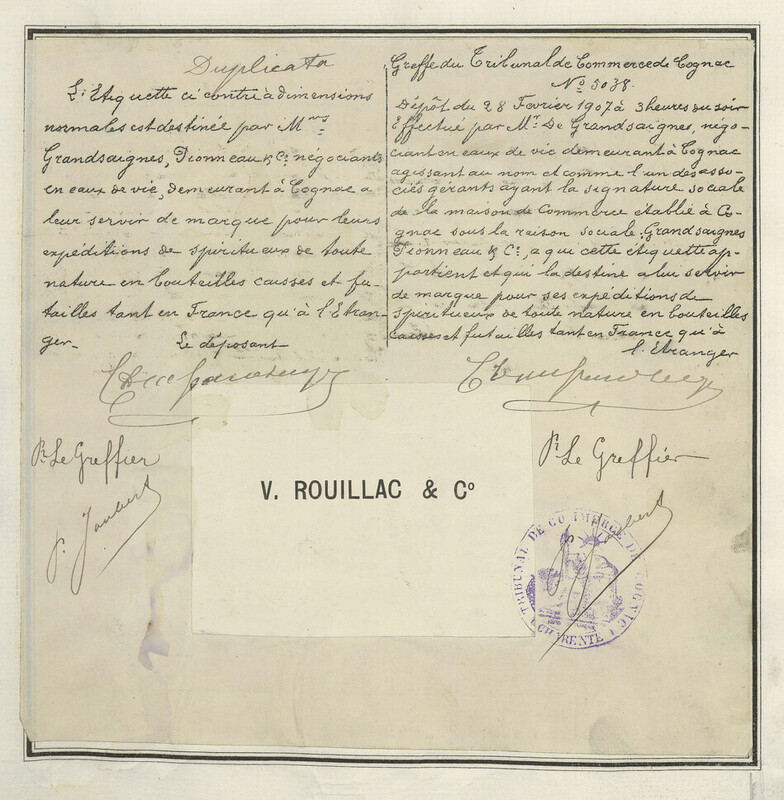 Duplicata
L'Etiquette ci contre à dimensions
normales est destinée par Mrs
Grandsaignes, Pionneau & Cie négociants
en eaux de vie, demeurant à Cognac a
leur servir de marque pour leurs
expéditions de spiritueux de toute
nature en bouteilles caisses et fu-
tailles tant en France qu'à l'Etran-
ger.
Le déposant
Pr Le Greffier
P. Joubert
Greffe du Tribunal de Commerce de Cognac
No 5038.
Dépôt du 28 Fevrier 1907 à 3 heures du soir
Effectué par Mr. De Grandsaignes, négo-
ciant en eaux de vie demeurant à Cognac
agissant au nom et comme l'un des asso-
ciés gérants ayant la signature sociale
de la maison de Commerce établie à Co-
gnac sous la raison sociale: Grandsaignes
Pionneau & Cie, a qui cette étiquette ap-
partient et qui la destine a lui servir
de marque pour ses expéditions de
spiritueux de toute nature en bouteilles
caisses et futailles tant en France qu'à
l'Etranger
Pr Le Greffier
Joubert
V. ROUILLAC & Co
TRIBUNAL DE COMMERCE DE COGNAC
CHARENTE